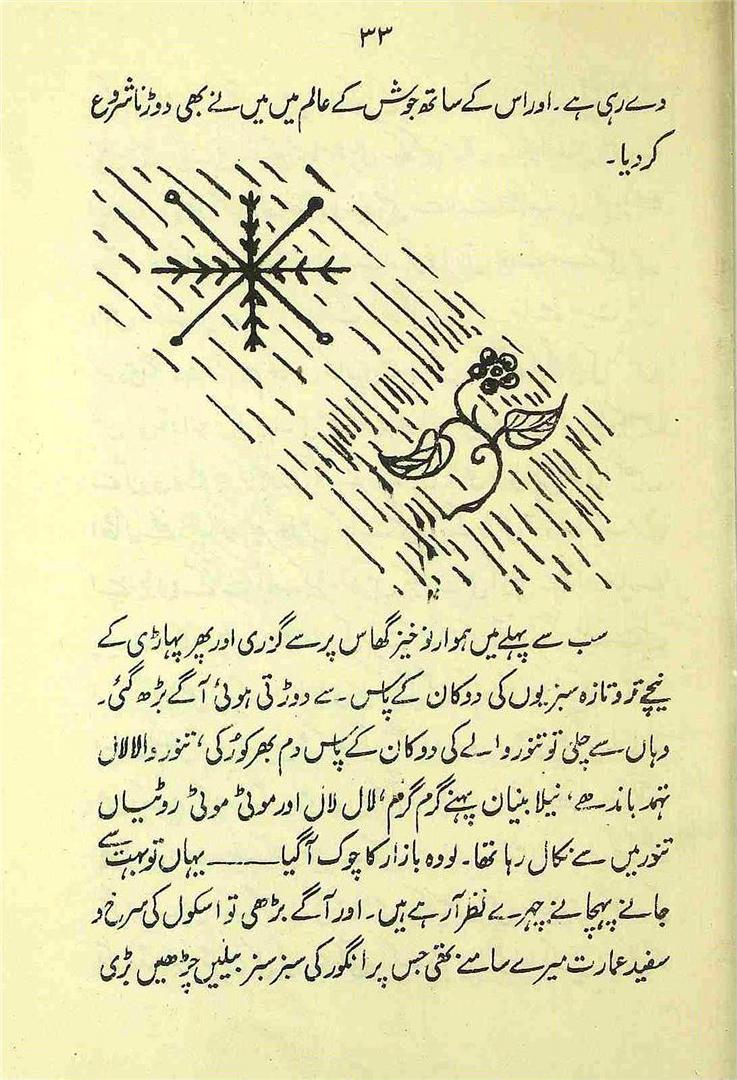 ۳۳
دے رہی ہے۔ اور اس کے ساتھ جوش کے عالم میں میں نے بھی دوڑنا شروع
کر دیا۔
سب سے پہلے میں ہموار نوخیز گھاس پر سے گزری اور پھر پہاڑی کے
نیچے تر و تازہ سبزیوں کی دوکان کے پاس۔ سے دوڑتی ہوئی آگے بڑھ گئی۔
وہاں سے چلی تو تنور والے کی دوکان کے پاس دم بھر کو رکی، تنور والا لال
تہمد باندھے، نیلا بنیان پہنے گرم گرم، لال لال اور موٹی موٹی روٹیاں
تنور میں سے نکال رہا تھا۔ لو وہ بازار کا چوک آ گیا ——— یہاں تو بہت سے
جانے پہچانے چہرے نظر آ رہے ہیں۔ اور آگے بڑھی تو اسکول کی سرخ و
سفید عمارت میرے سامنے تھی جس پر انگور کی سبز سبز بیلیں چڑھیں بڑی